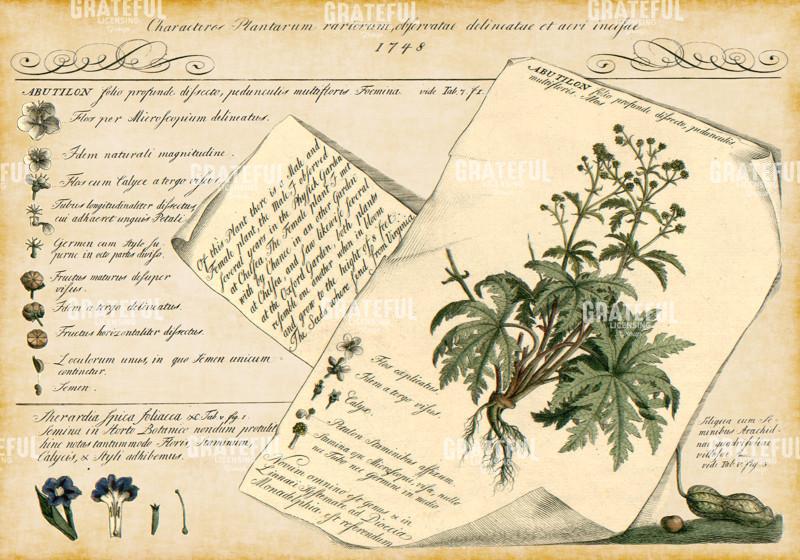 Characteres Plantarum rariorum, observatae delineatae et aeri incisae
1748
ABUTILON folio profunde dissecto, pedunculis multifloris Foemina. vide Tab. 7. f. 2.
Flos per Microscopium delineatus.
Idem naturali magnitudine.
Flos cum Calyce a tergo visus.
Tubus longitudinaliter dissectus,
cui adhaeret unguis Petali.
Germen cum Stylo su
perne in octo partes diviso.
Fructus maturus desuper
visus.
Idem a tergo delineatus.
Fructus horizontaliter dissectus.
Loculorum unus, in quo Semen unicum
continetur.
Semen.
Sherardia Spica foliacea &c Tab. v. fig. 1.
Semina in Horto Botanico nondum protulit,
hinc notas tantummodo Floris, Staminum,
Calycis, & Styli adhibemus.
Of this Plant there is a Male and
Female plant, the Male I observed
several years in the Physick Garden
at Chelsea. The Female Plant I met
with by Chance in an other Garden
at Chelsea and saw likewise several
at the Oxford Garden, both plants
resemble one another when in bloom
and grow to the height of 8 feet.
The Seeds were send from Virginia.
ABUTILON folio profunde dissecto, pedunculis
multifloris. Mas
Flos explicatus.
Idem a tergo visus.
Calyx.
Petalon Staminibus afficum.
Stamina que Microscopio visa, nullo
nec Tubo nec Germine in medio
Novum omnino est genus & in
Linnaei Systemate, ad Dioecia
Monadelphia est referendum.
Siliqua cum Se-
minibus Arachid-
nae quadrifoliae
villosae
vide Tab. v. fig. 3.
GRATEFUL
LICENSING